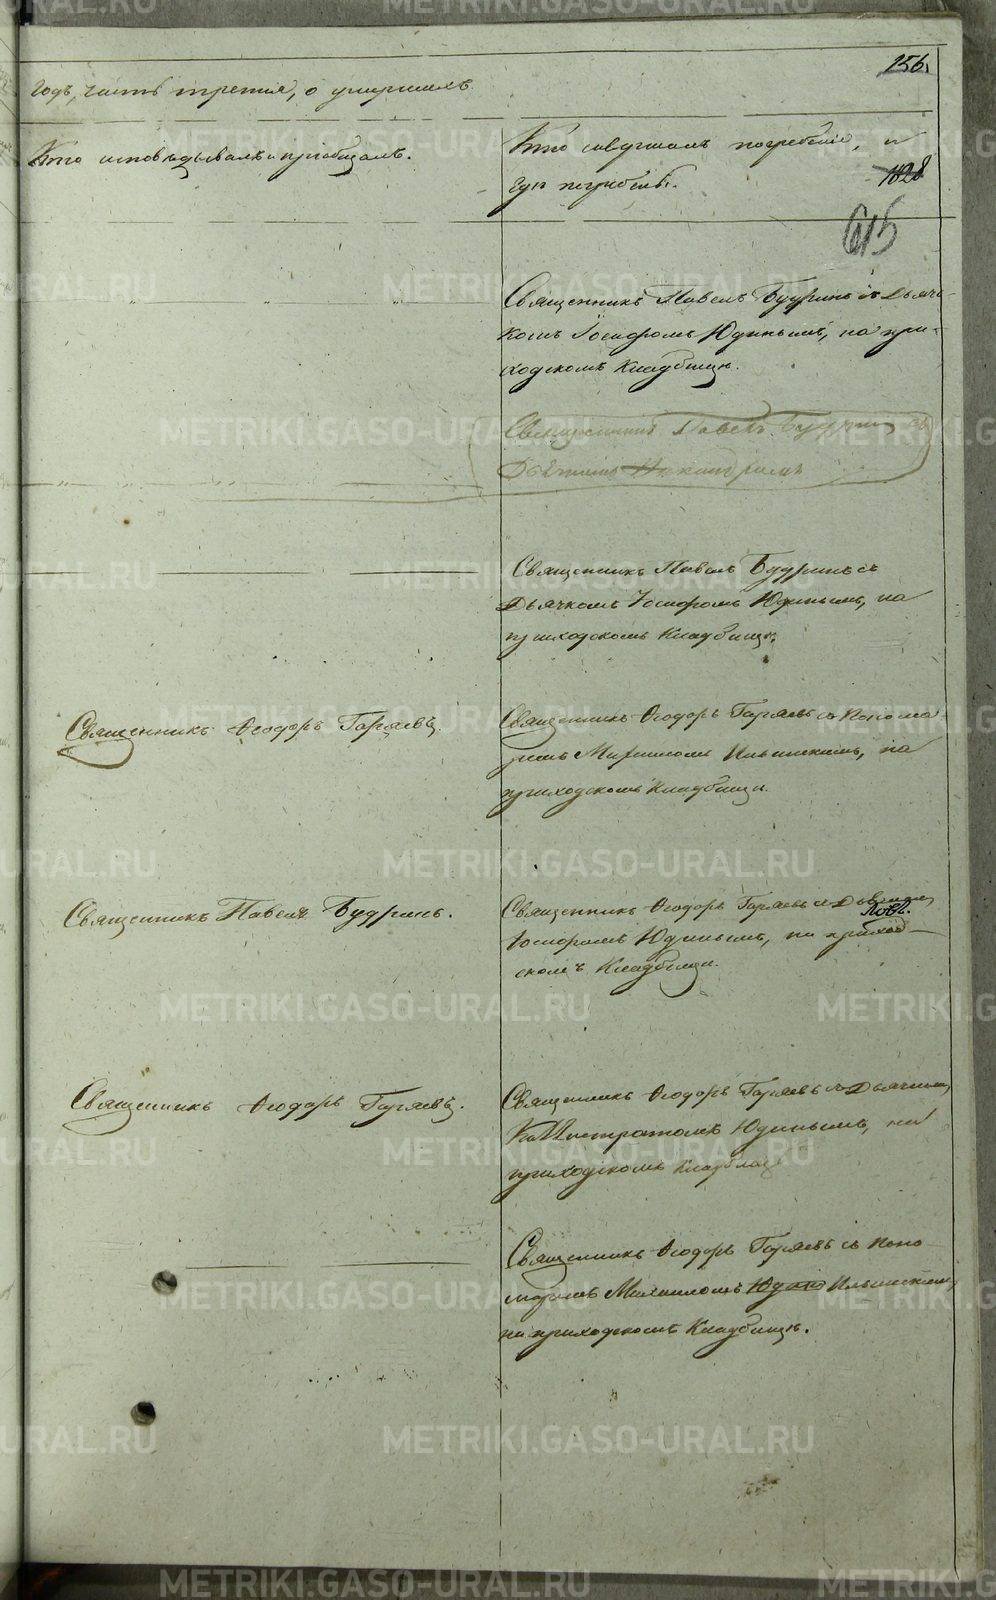 156.
годъ, часть третія, о умершихъ
Кто исповѣдывалъ и пріобщалъ.
Кто совершалъ погребеніе, и
гдѣ погребены.
1028
615
Священникъ Павелъ Будринъ съ дьяч-
комъ Іосифомъ Юдинымъ, на при-
ходскомъ кладбищѣ.
Священникъ Павелъ Будринъ съ
Дьячкомъ
Священникъ Павелъ Будринъ съ
Дьячкомъ Іосифомъ Юдинымъ, на
приходскомъ кладбищѣ.
Священникъ Ѳеодоръ Гаряевъ.
Священникъ Ѳеодоръ Гаряевъ съ Понома-
ремъ Михаиломъ Ильинскимъ, на
приходскомъ кладбищѣ.
Священникъ Павелъ Будринъ.
Священникъ Ѳеодоръ Гаряевъ съ Дьячкомъ
Іосифомъ Юдинымъ, на приход-
скомъ кладбищѣ.
Священникъ Ѳеодоръ Гаряевъ.
Священникъ Ѳеодоръ Гаряевъ съ Дьячкомъ
Каллистратомъ Юдинымъ, на
приходскомъ кладбищѣ
Священникъ Ѳеодоръ Гаряевъ съ Поно-
маремъ Михаиломъ Юдин Ильинскимъ,
на приходскомъ кладбищѣ.
METRIKI.GASO-URAL.RU